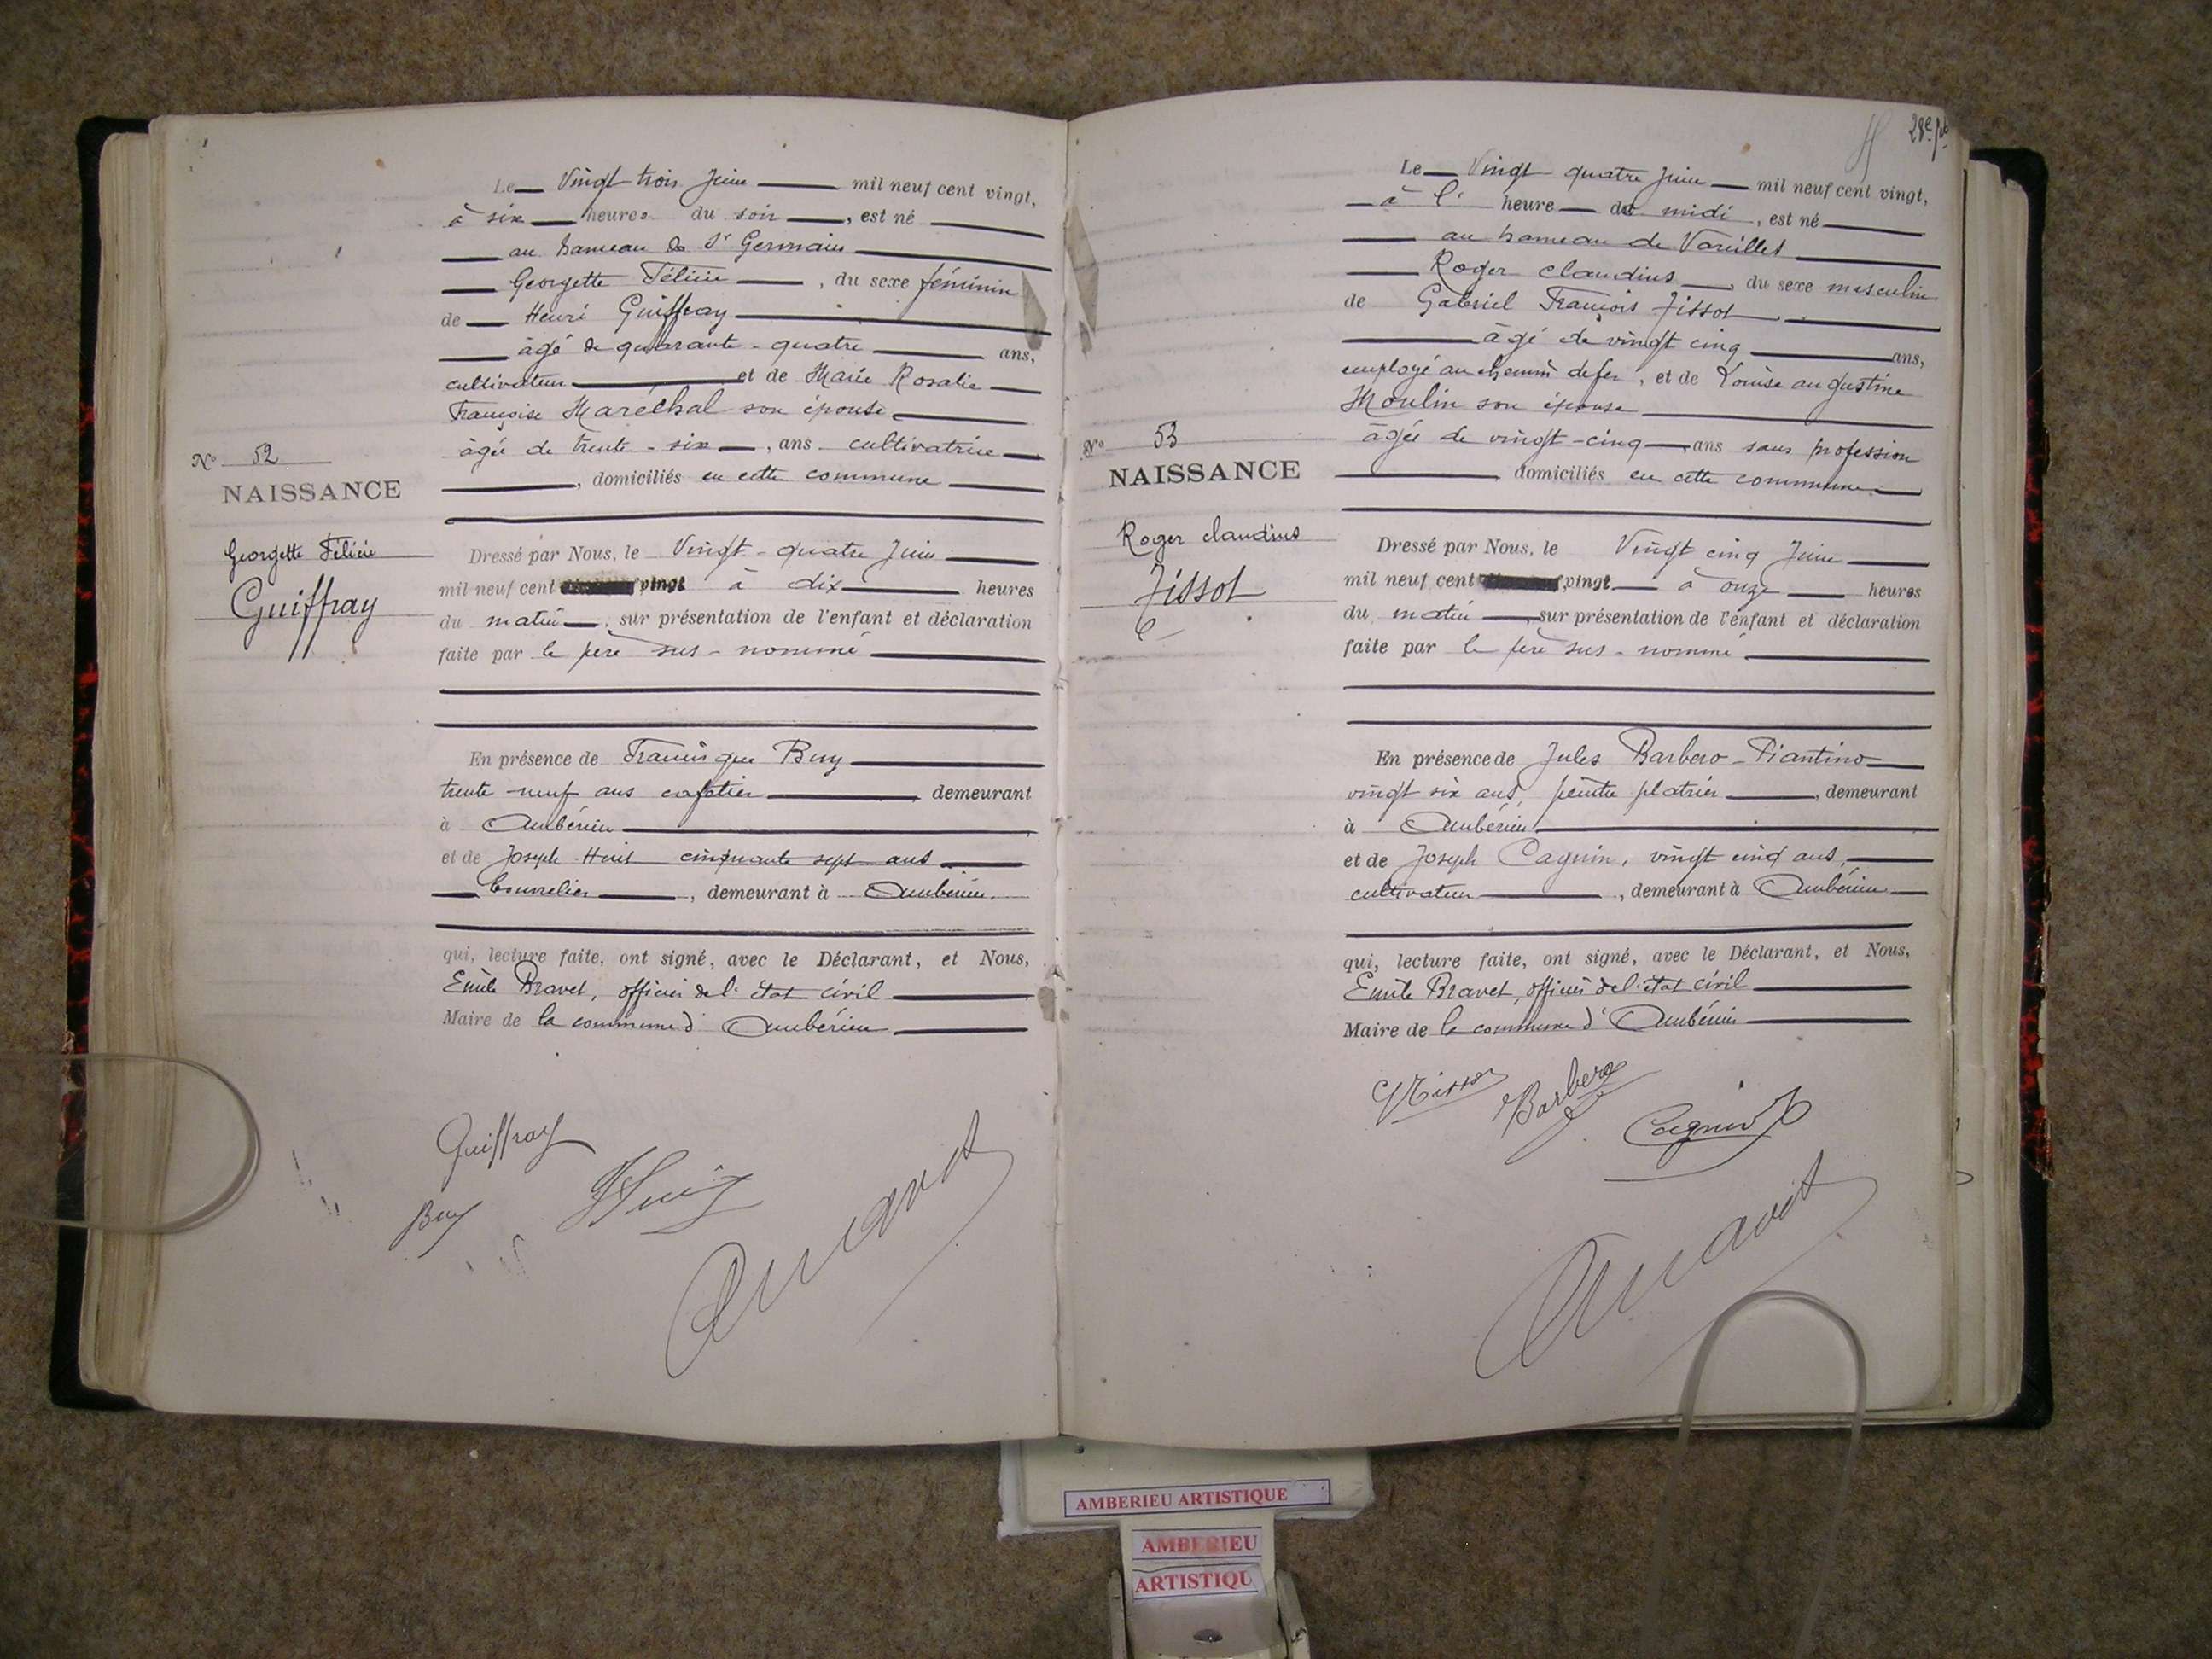 Le Vingt trois Juin mil neuf cent vingt,
à six heures du soir, est né
au hameau de St Germain
Georgette Félicie, du sexe féminin
de Henri Guiffray
âgé de quarante-quatre ans,
cultivateur et de Marie Rosalie
Françoise Maréchal son épouse
âgée de trente-six, ans cultivatrice
, domiciliés en cette commune
No 52
NAISSANCE
Georgette Félicie
Guiffray
Dressé par Nous, le Vingt-quatre Juin
mil neuf cent vingt à dix heures
du matin, sur présentation de l'enfant et déclaration
faite par le père sus-nommé
En présence de Francisque Buy
trente-neuf ans cafetier demeurant
à Ambérieu
et de Joseph Huit cinquante sept ans
bourrelier, demeurant à Ambérieu.
qui, lecture faite, ont signé, avec le Déclarant, et Nous,
Emile Bravet, officier de l'état civil
Maire de la commune d'Ambérieu
Guiffray
Buy
28e
Le Vingt quatre Juin mil neuf cent vingt,
à l' heure du midi, est né
au hameau de Vareilles
Roger Claudius, du sexe masculin
de Gabriel François Tissot
âgé de vingt cinq ans,
employé au chemin de fer, et de Louise Augustine
Moulin son épouse
âgée de vingt-cinq ans sans profession
domiciliés en cette commune
No 53
NAISSANCE
Roger Claudius
Tissot
Dressé par Nous, le Vingt cinq Juin
mil neuf cent vingt à onze heures
du matin, sur présentation de l'enfant et déclaration
faite par le père sus-nommé
En présence de Jules Barbero-Piantino
vingt six ans, peintre platrier, demeurant
à Ambérieu
et de Joseph Cagnin, vingt cinq ans,
cultivateur, demeurant à Ambérieu
qui, lecture faite, ont signé, avec le Déclarant, et Nous,
Emile Bravet, officier de l'état civil
Maire de la commune d'Ambérieu
GTissot
Barbero
Cagnin
AMBERIEU ARTISTIQUE
AMBERIEU
ARTISTIQU